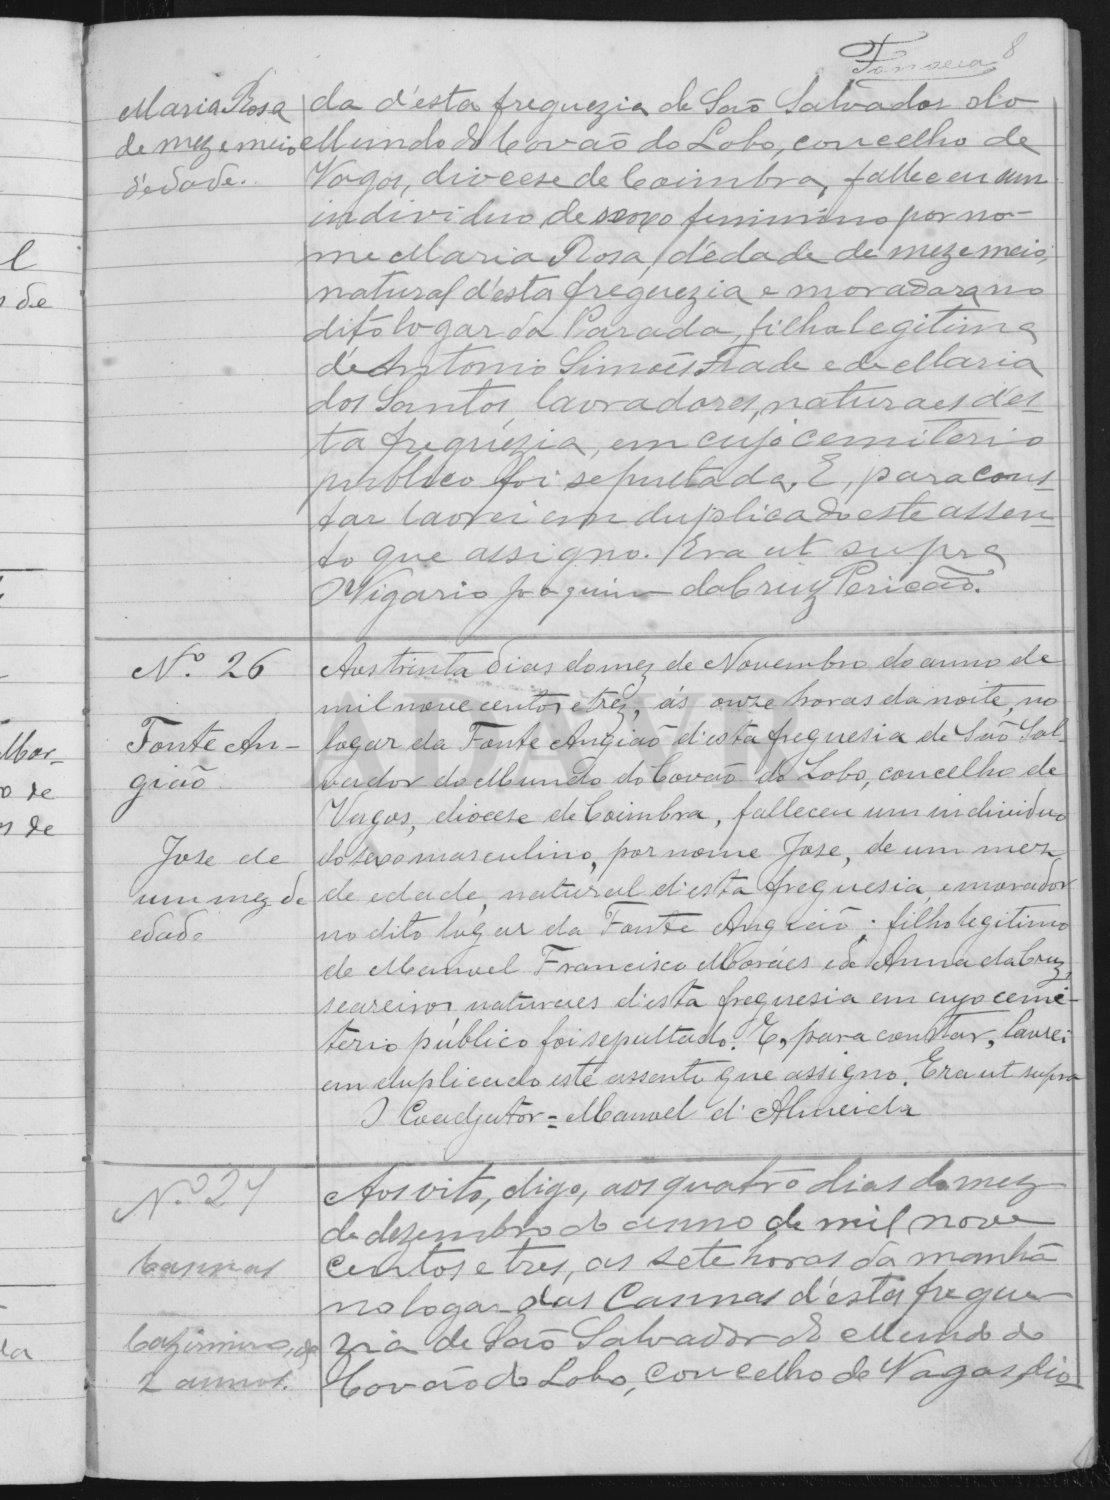 Fonseca 8
Maria Rosa
de mez e meio
d'edade.
da d'esta freguezia de São Salvador do
Mundo do Covão do Lobo, concelho de
Vagos, diocese de Coimbra, falleceu um
individuo de sexo feminino por no-
me Maria Rosa, d'edade de mez e meio,
natural d'esta freguezia e moradora no
dito logar da Parada, filha legitima
d'Antonio Simões Frade e de Maria
dos Santos, lavradores, naturaes d'es-
ta freguezia, em cujo cemiterio
publico foi sepultada. E, para cons-
tar lavrei em duplicado este assen-
to que assigno. Era ut supra
O Vigario Joaquim da Cruz Pericão.
N.º 26
Fonte An-
gião
Jose de
um mez de
edade
Aos trinta dias do mez de Novembro do anno de
mil nove centos e trez, ás onze horas da noite, no
logar da Fonte Angião d'esta freguesia de São Sal-
vador do Mundo do Covão do Lobo, concelho de
Vagos, diocese de Coimbra, falleceu um individuo
do sexo masculino, por nome Jose, de um mez
de edade, natural d'esta freguesia, e morador
no dito logar da Fonte Angião; filho legitimo
de Manoel Francisco Moráes e de Anna da Cruz,
seareiros, naturaes d'esta freguesia em cujo cemi-
terio público foi sepultado. E, para constar, lavrei
em duplicado este assento que assigno. Era ut supra
O Coadjutor = Manoel d'Almeida
N.º 27
Cannas
Cazimiro, de
2 annos.
Aos oito, digo, aos quatro dias do mez
de dezembro do anno de mil nove
centos e tres, as sete horas da manhã
no logar das Cannas d'esta fregue-
zia de São Salvador do Mundo do
Covão do Lobo, concelho de Vagos, dio-
ADAVR
l
s de
Mor-
o de
s de
da